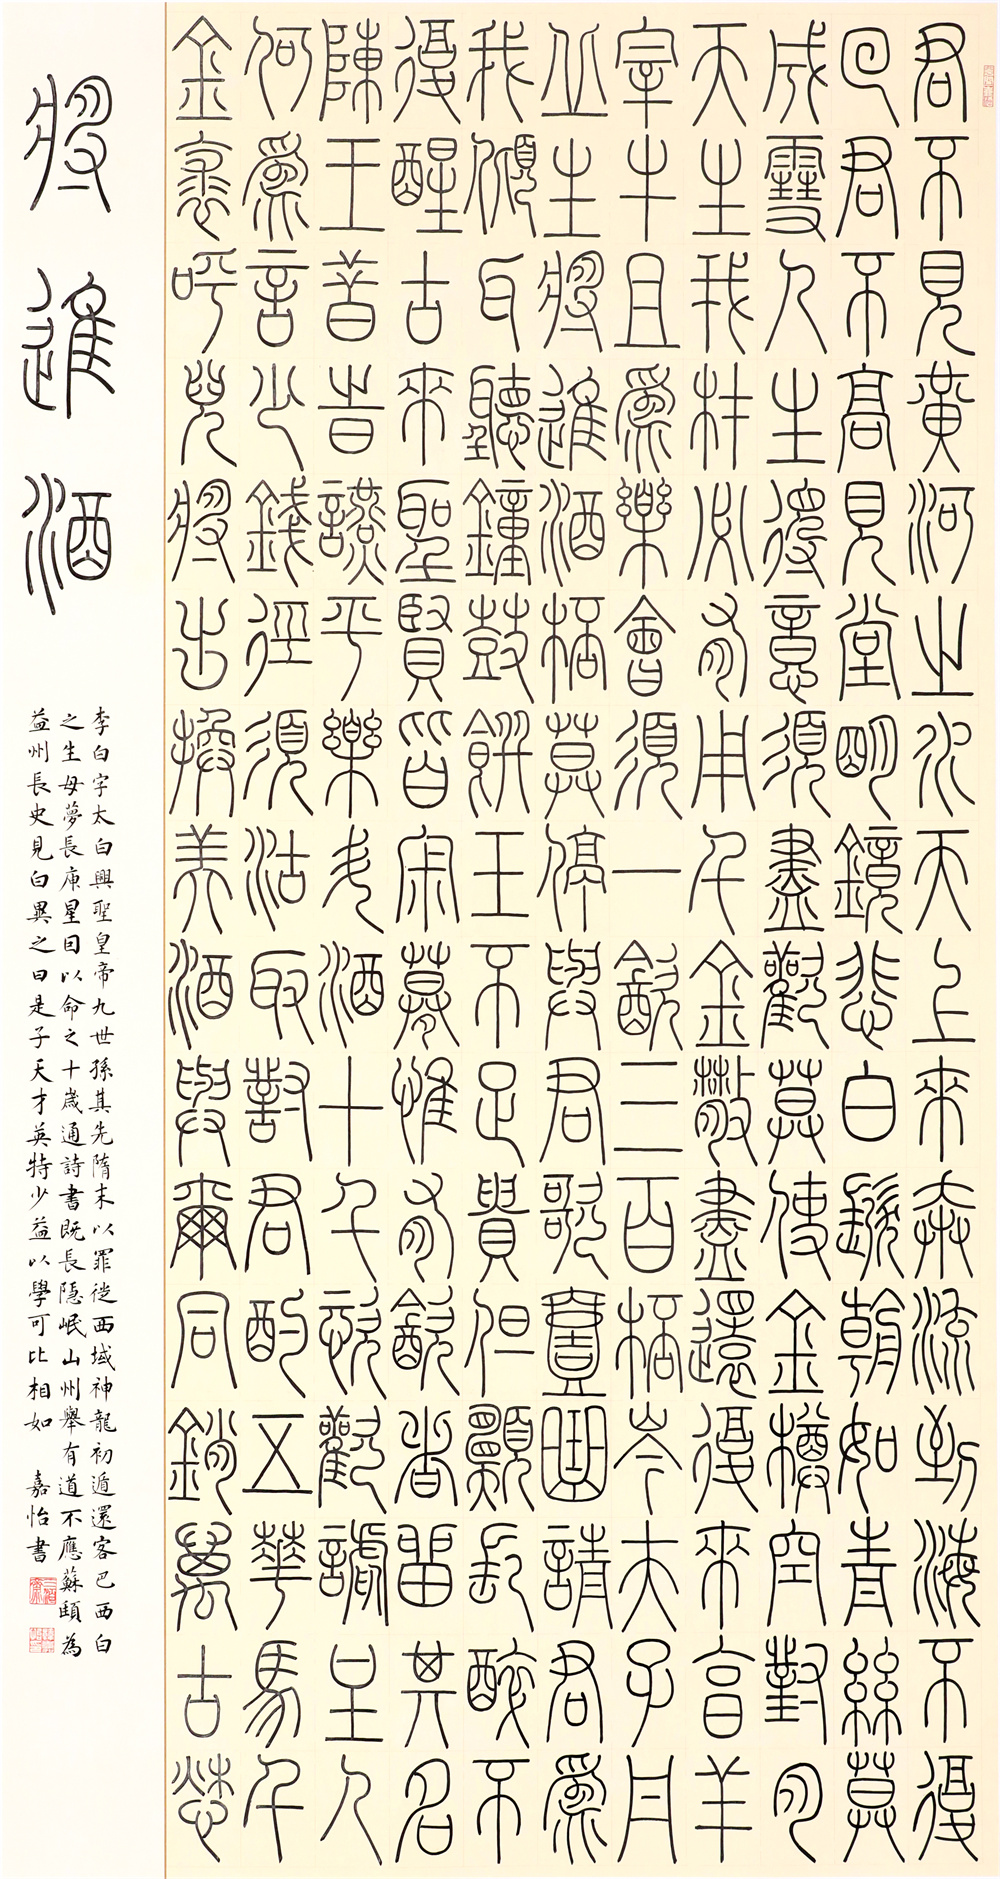 君不見黃河之水天上來奔流到海不復
回君不高見堂明鏡悲白髮朝如青絲莫
成雪人生得意須盡歡莫使金樽空對月
天生我材必有用千金散盡還復來烹羊
宰牛且為樂會須一飲三百杯岑夫子丹
丘生將進酒杯莫停與君歌一曲請君為
我傾耳聽鐘鼓饌玉不足貴但願長醉不
復醒古來聖賢皆寂寞惟有飲者留其名
陳王昔時讌平樂斗酒十千恣歡謔主人
何為言少錢徑須沽取對君酌五華馬千
金裘呼兒將出換美酒與爾同銷萬古愁
將進酒
李白字太白興聖皇帝九世孫其先隋末以罪徙西域神龍初遁還客巴西白
之生母夢長庚星因以命之十歲通詩書既長隱岷山州舉有道不應蘇頲為
益州長史見白異之曰是子天才英特少益以學可比相如 嘉怡書